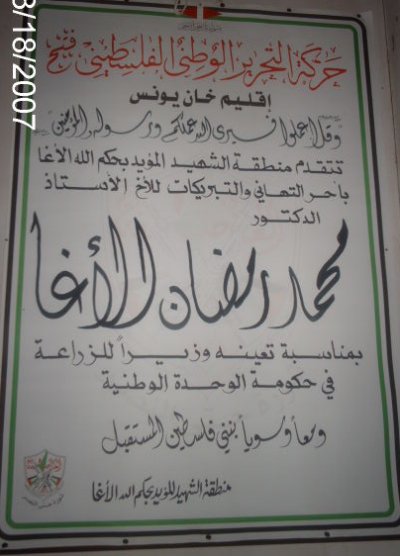 حركة التحرير الوطني الفلسطيني فتح
إقليم خان يونس
وقل اعملوا فسيرى الله عملكم ورسوله والمؤمنون
تتقدم منطقة الشهيد المؤيد بحكم الله الأغا
بأحر التهاني والتبريكات للأخ الأستاذ
الدكتور
محمد رمضان الأغا
بمناسبة تعينه وزيراً للزراعة
في حكومة الوحدة الوطنية
ومعاً وسوياً نبني فلسطين المستقبل
منطقة الشهيد المؤيد بحكم الله الأغا
8/18/2007